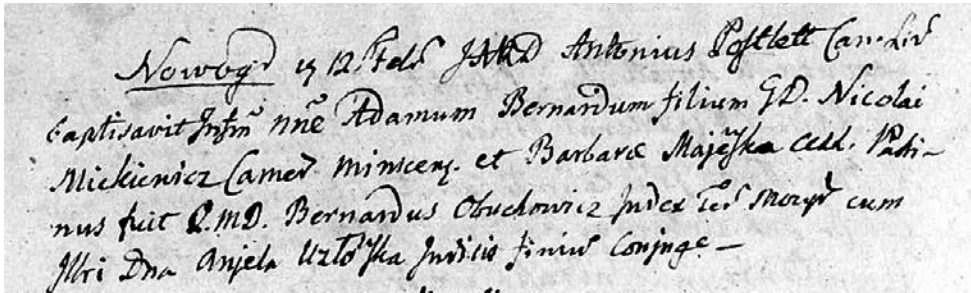 Nowogd 12. Febr Antonius Postlett Can. Liv
baptisavit Infm nne Adamum Bernardum filium GD. Nicolai
Mickiewicz Camer minscens. et Barbaræ Majewska CLL. Patri-
nus fuit Q.MD. Bernardus Obuchowicz Judex Ter Mozyr cum
Illri Dna Anjela Uzłowska Judicis finiu Conjuge —